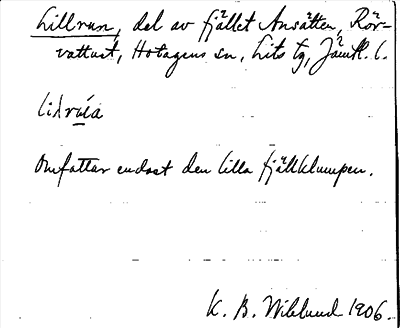 Lillrun, del av fjället Ansätten, Rör-
vattnet, Hotagens sn, Lits tg, Jämtl. l.
Omfattar endast den lilla fjällklumpen.
K. B. Wiklund 1906.